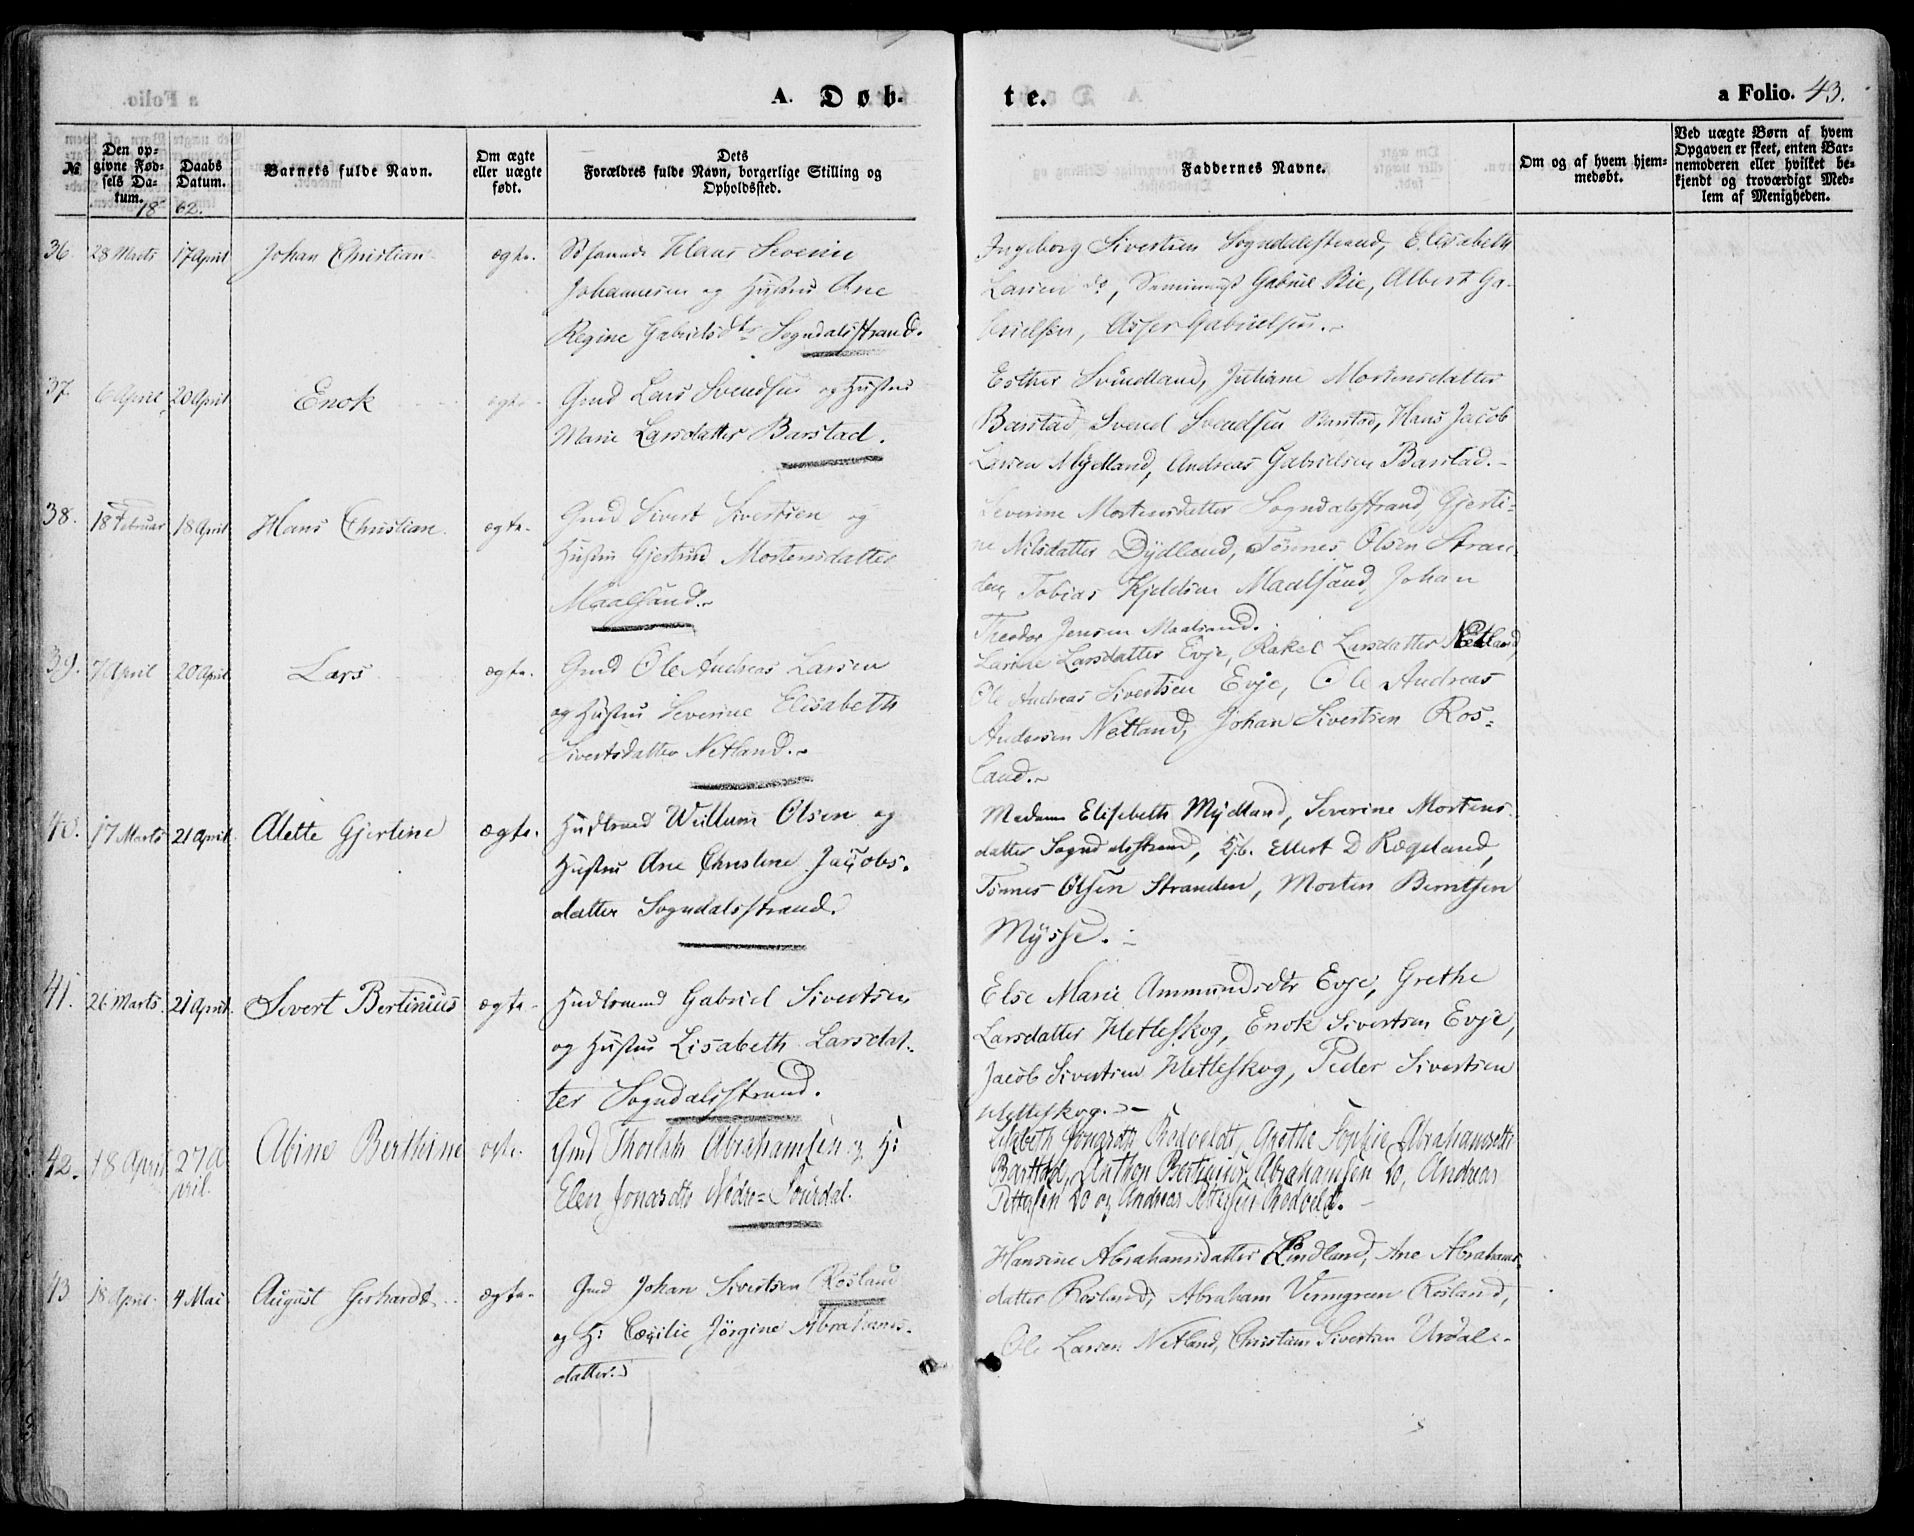 A. Døb-
te.
a Folio. 43.
№
Den op-
givne Fød-
sels Da-
tum.
1862.
Daabs
Datum.
Barnets fulde Navn.
Om ægte
eller uægte
født.
Dets
Forældres fulde Navn, borgerlige Stilling og
Opholdssted.
Faddernes Navne.
Om og af hvem hjem-
medøbt.
Ved uægte Børn af hvem
Opgaven er skeet, enten Bar-
nemoderen eller hvilket be-
kjendt og troværdigt Med-
lem af Menigheden.
36. 28 Marts 17 April Johan Christian ægte.
Hans Severin
Johannesen og Hustru Ane
Regine Gabrielsdtr Sogndalsstrand.
Ingeborg Sivertsen Sogndalsstrand, Elisabeth
Larsen do, Gabriel Bie, Albert Ga-
brielsen, Asser Gabrielsen.
37. 6 April 20 April Enok ægte
Gmd Lars Svendsen og Hustru
Marie Larsdatter Barstad.
Esther Svindland, Juliane Mortensdatter
Barstad, Svend Svendsen Barstad, Hans Jacob
Larsen Mydland, Andreas Gabrielsen Barstad.
38. 18 Februar 18 April Hans Christian ægte.
Gmd Sivert Sivertsen og
Hustru Gjertrud Mortensdatter
Maalsand.
Severine Mortensdatter Sogndalsstrand, Gjerti-
ne Nilsdatter Dydland, Tønnes Olsen Stran-
den, Tobias Kjeldsen Maalsand, Johan
Theodor Jensen Maalsand.
39. 7 April 20 April Lars ægte.
Gmd Ole Andreas Larsen
og Hustru Severine Elisabeth
Sivertsdatter Netland.
Larine Larsdatter Evje, Rakel Larsdatter Netland,
Ole Andreas Sivertsen Evje, Ole Andreas
Andersen Netland, Johan Sivertsen Ros-
land.
40. 17 Marts 21 April Alette Gjertine ægte.
Huusmand Willum Olsen og
Hustru Ane Christine Jacobs-
datter Sogndalsstrand.
Madam Elisebeth Mydland, Severine Mortens-
datter Sogndalsstrand, Ellert D Rægeland,
Tønnes Olsen Stranden, Morten Berntsen
Mysse.
41. 26 Marts 21 April. Sivert Bertinius ægte
Huusmand Gabriel Sivertsen
og Hustru Lisabeth Larsdat-
ter Sogndalsstrand.
Else Marie Ammundsdtr Evje, Grethe
Larsdatter Hetleskog, Enok Sivertsen Evje,
Jacob Sivertsen Hetleskog, Peder Sivertsen
Hetleskog.
42. 18 April 27 A
pril. Abine Berthine ægte.
Gmd Abrahamsen og H:
Elen Jonasdtr Nedre=
Grethe Sophie Abrahamsdtr
Barstad, Anthon Bertinius Abrahamsen do, Andreas
Pettersen do og Andreas Pettersen
43 18 April 4 Mai August Gerhardt ægte.
Gmd Johan Sivertsen Rosland
og H: Cecilie Jørgine Abrahams-
datter.
Hansine Abrahamsdatter Lindland, Ane Abrahams-
datter Rosland, Abraham Rosland,
Ole Larsen Netland, Christian Sivertsen Urdal.